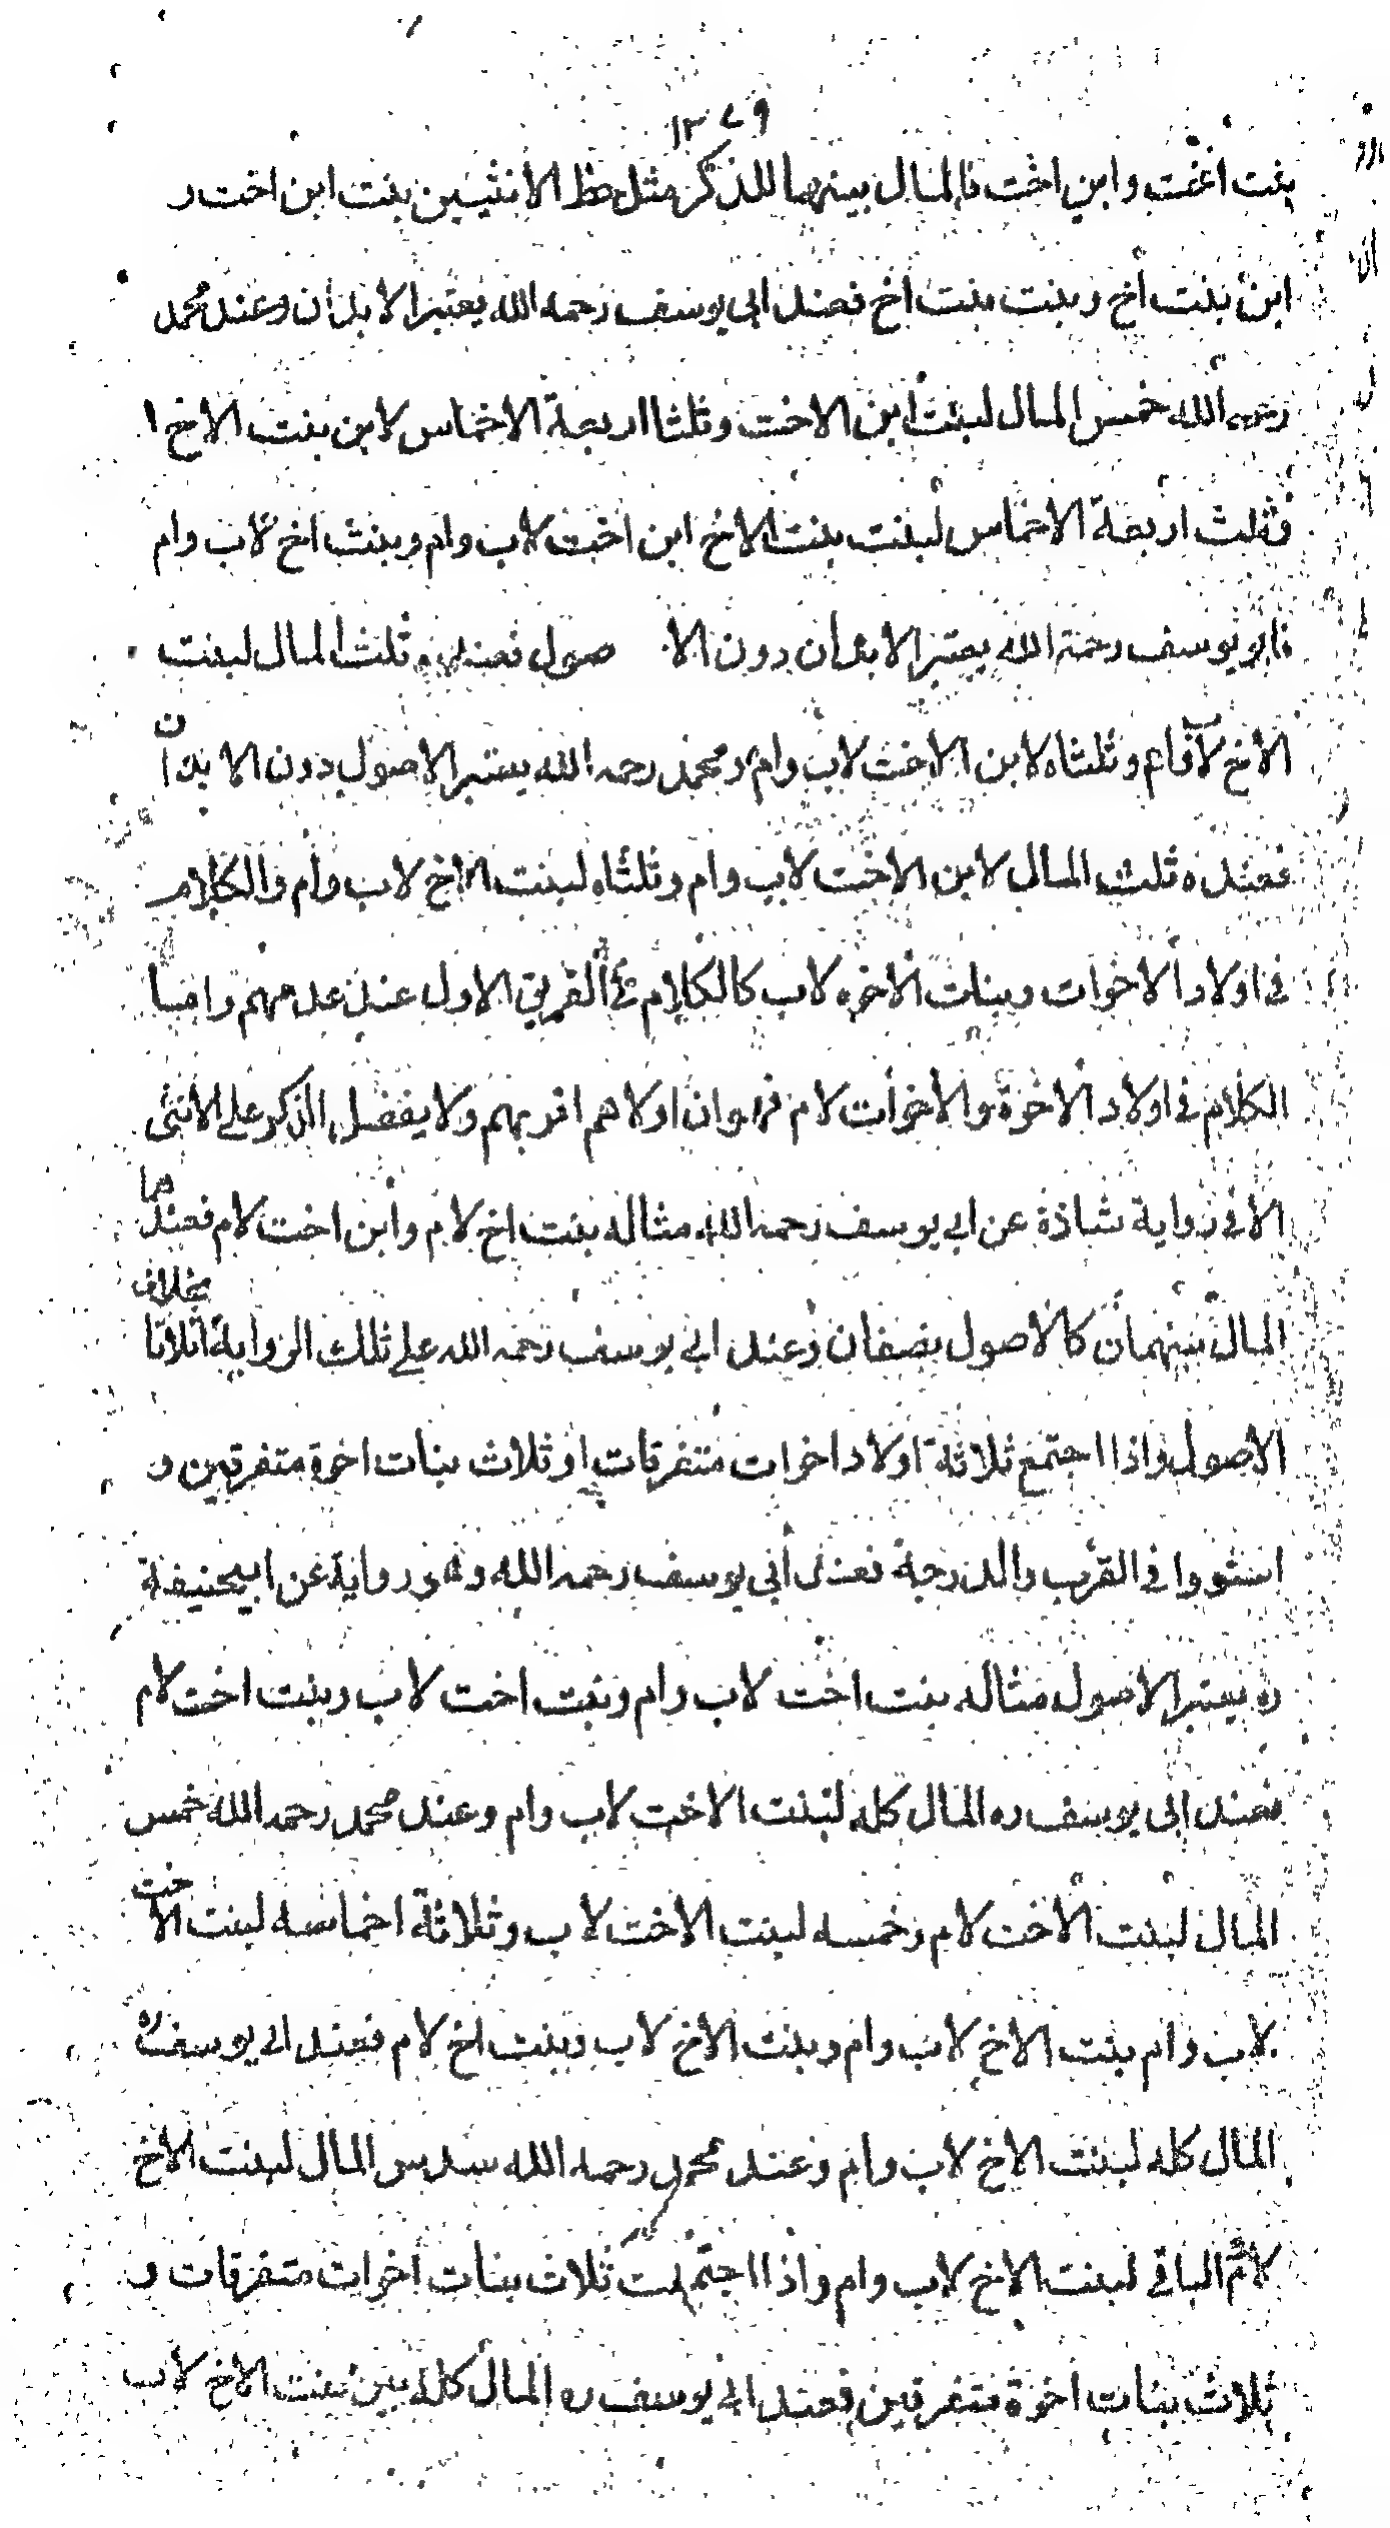 ١٣٧٩
بنت اخت وابن اخت فالمال بينهما للذكر مثل حظ الانثيين بنت ابن اخت و
ابن بنت اخ وبنت بنت اخ فعند ابى يوسف رحمه الله يعتبر الابدان وعند محمد
رحمه الله خمس المال لبنت ابن الاخت وثلثا اربعة الاخماس لابن بنت الاخ ا
وثلث اربعة الاخماس لبنت بنت الاخ ابن اخت لاب وام وبنت اخ لاب وام
فابو يوسف رحمة الله يعتبر الابدان دون الا صول فعنده ثلث المال لبنت
الاخ لاب وام وثلثاه لابن الاخت لاب وام ومحمد رحمه الله يعتبر الاصول دون الابدان
فعنده ثلث المال لابن الاخت لاب وام وثلثاه لبنت الاخ لاب وام والكلام
فى اولاد الاخوات وبنات الاخوه لاب كالكلام فى الفريق الاول عند عدمهم واما
الكلام فى اولاد الاخوة والاخوات لام فهو ان اولاهم اقربهم ولا يفضل الذكر على الانثى
الا فى رواية شاذة عن ابى يوسف رحمه الله مثاله بنت اخ لام وابن اخت لام فعندهما
المال بينهما كالاصول نصفان وعند ابى يوسف رحمه الله على تلك الرواية اثلاثا بخلاف
الاصول واذا اجتمع ثلاثة اولاد اخوات متفرقات او ثلاث بنات اخوة متفرقين و
استووا فى القرب والدرجة فعند ابى يوسف رحمه الله وهو رواية عن ابيحنيفة
ره يعتبر الاصول مثاله بنت اخت لاب وام وبنت اخت لاب وبنت اخت لام
فعند ابى يوسف ره المال كله لبنت الاخت لاب وام وعند محمد رحمه الله خمس
المال لبنت الاخت لام وخمسه لبنت الاخت لاب وثلاثة اخماسه لبنت الاخت
لاب وام بنت الاخ لاب وام وبنت الاخ لاب وبنت اخ لام فعند ابى يوسف ره
المال كله لبنت الاخ لاب وام وعند محمد رحمه الله سدس المال لبنت الاخ
لام الباقى لبنت الاخ لاب وام واذا اجتمعت ثلاث بنات اخوات متفرقات و
ثلاث بنات اخوة متفرقين فعند ابى يوسف ره المال كله بين بنت الاخ لاب